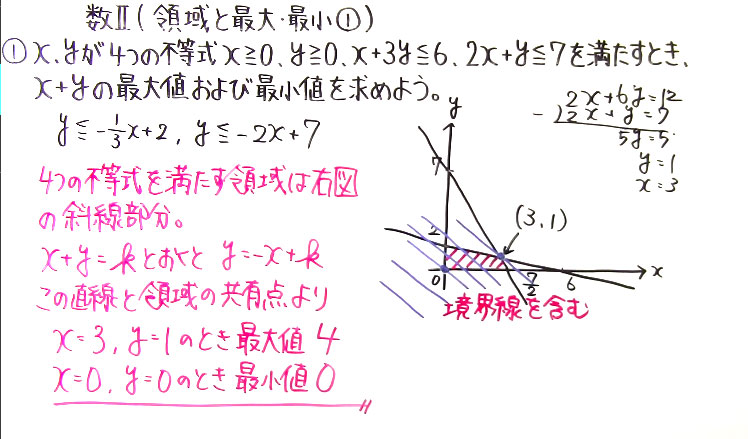 数Ⅱ(領域と最大・最小①)
① x、yが4つの不等式 x≧0、y≧0、x+3y≦6、2x+y≦7を満たすとき、
x+yの最大値および最小値を求めよう。
y≦-1/3x+2, y≦-2x+7
4つの不等式を満たす領域は右図
の斜線部分。
x+y=kとおくと y=-x+k
この直線と領域の共有点より
x=3, y=1のとき最大値 4
x=0, y=0のとき最小値 0
2x+6y=12
-)2x+y=7
5y=5
y=1
x=3
y
7
(3,1)
2
0
7/2
6
x
境界線を含む